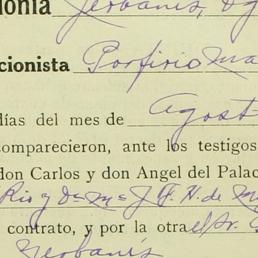 onia
cionista Porfirio Ma
días del mes de Agost
comparecieron, ante los testigos
don Carlos y don Angel del Palac
Rio y Dª Mª J. F. H. de M
contrato, y por la otra el Sr.